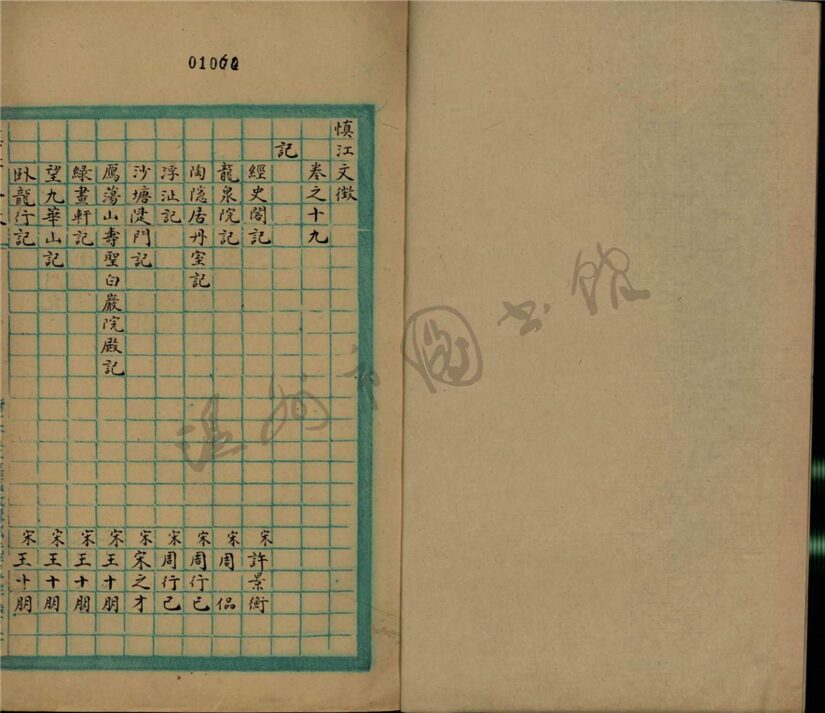 01062
慎江文徵
卷之十九
記
經史閣記 宋 許景衡
龍泉院記 宋 周侣
陶隱居丹室記 宋 周行己
浮沚記 宋 周行己
沙塘陡門記 宋 宋之才
鴈蕩山壽聖白巖院殿記 宋 王十朋
綠畫軒記 宋 王十朋
望九華山記 宋 王十朋
臥龍行記 宋 王十朋
温州市图书馆